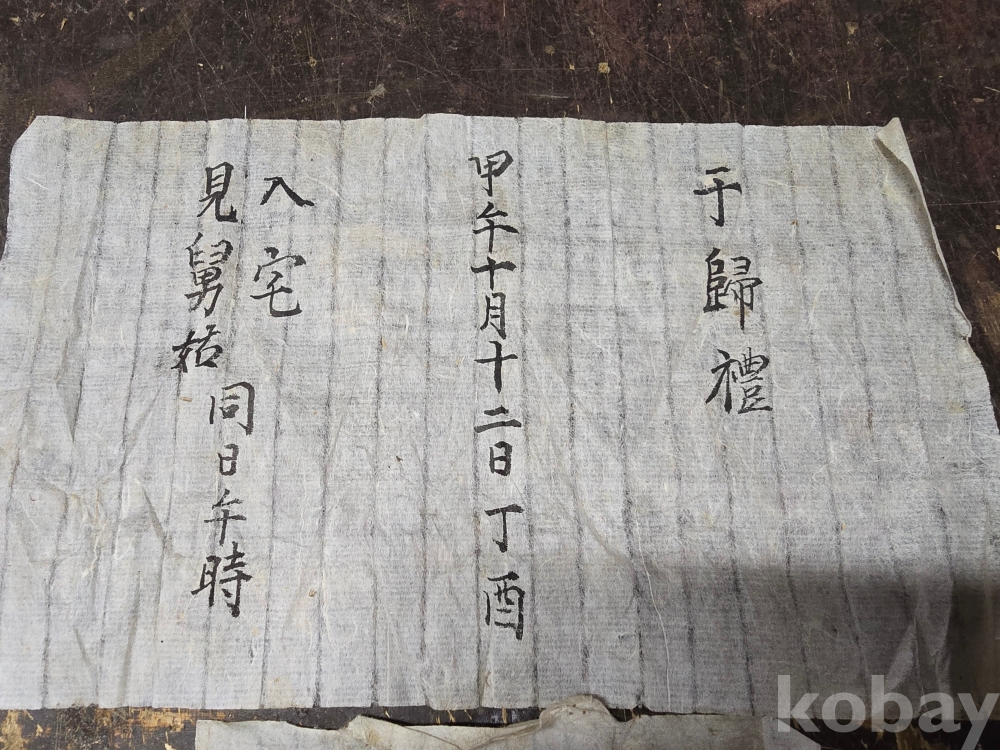 于歸禮
甲午十月十二日丁酉
入宅
見舅姑
同日午時
kobay